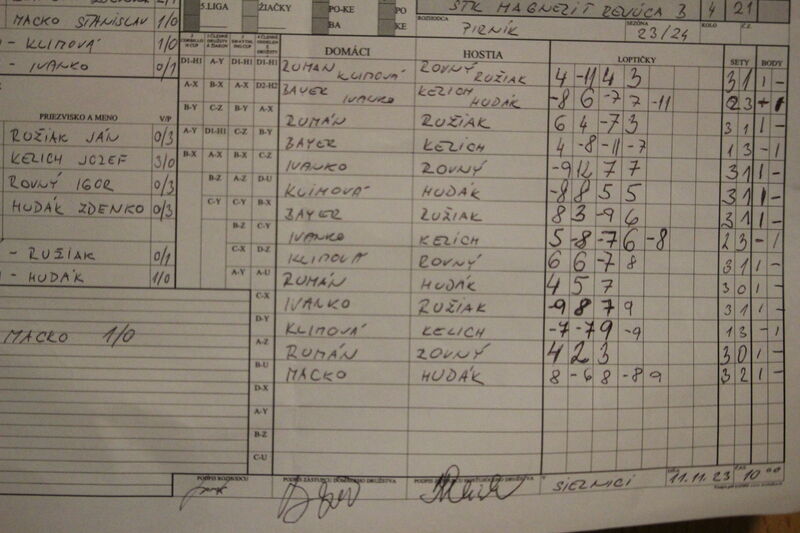 5.LIGA ŽIAČKY PO-KE PO
BA KE
STK MAGNEZIT REVÚCA B 4 21
ROZHODCA PIRNÍK SEZÓNA 23/24 KOLO Č.Z.
MACKO STANISLAV 1/0
- KLIMOVÁ 1/0
- IVANKO 0/1
PRIEZVISKO A MENO V/P
RUŽIAK JÁN 0/3
KERICH JOZEF 3/0
ROVNÝ IGOR 0/3
HUDÁK ZDENKO 0/3
- RUŽIAK 0/1
- HUDÁK 1/0
MACKO 1/0
DOMÁCI HOSTIA LOPTIČKY SETY BODY
D1-H1 A-Y D1-H1 D1-H1 RUMAN KLIMOVÁ ROVNÝ RUŽIAK 4 -11 4 3 3 1 1 -
A-X B-X A-X D2-H2 BAYER IVANKO KERICH HUDÁK -8 6 -7 7 -11 2 3 - 1
B-Y C-Z B-Y A-X RUMÁN RUŽIAK 6 4 -7 3 3 1 1 -
A-Y D1-H1 C-Z B-Y BAYER KERICH 4 -8 -11 -7 1 3 - 1
B-X A-X B-X C-Z IVANKO ROVNÝ -9 12 7 7 3 1 1 -
B-Z A-Z D-U KLIMOVÁ HUDÁK -8 8 5 5 3 1 1 -
C-Y C-Y B-X BAYER RUŽIAK 8 3 -9 6 3 1 1 -
B-Z C-Y IVANKO KERICH 5 -8 -7 6 -8 2 3 - 1
C-X D-Z KLIMOVÁ ROVNÝ 6 6 -7 8 3 1 1 -
A-Y A-U RUMÁN HUDÁK 4 5 7 3 0 1 -
C-X IVANKO RUŽIAK -9 8 7 9 3 1 1 -
D-Y KLIMOVÁ KERICH -7 -7 9 -9 1 3 - 1
A-Z RUMÁN ROVNÝ 4 2 3 3 0 1 -
B-U MACKO HUDÁK 8 -6 8 -8 9 3 2 1 -
D-X
A-Y
B-Z
C-U
PODPIS ROZHODCU PODPIS ZÁSTUPCU DOMÁCEHO DRUŽSTVA PODPIS ZÁSTUPCU HOSŤUJÚCEHO DRUŽSTVA V SIRNICI DŇA 11.11.23 ČAS 10 00